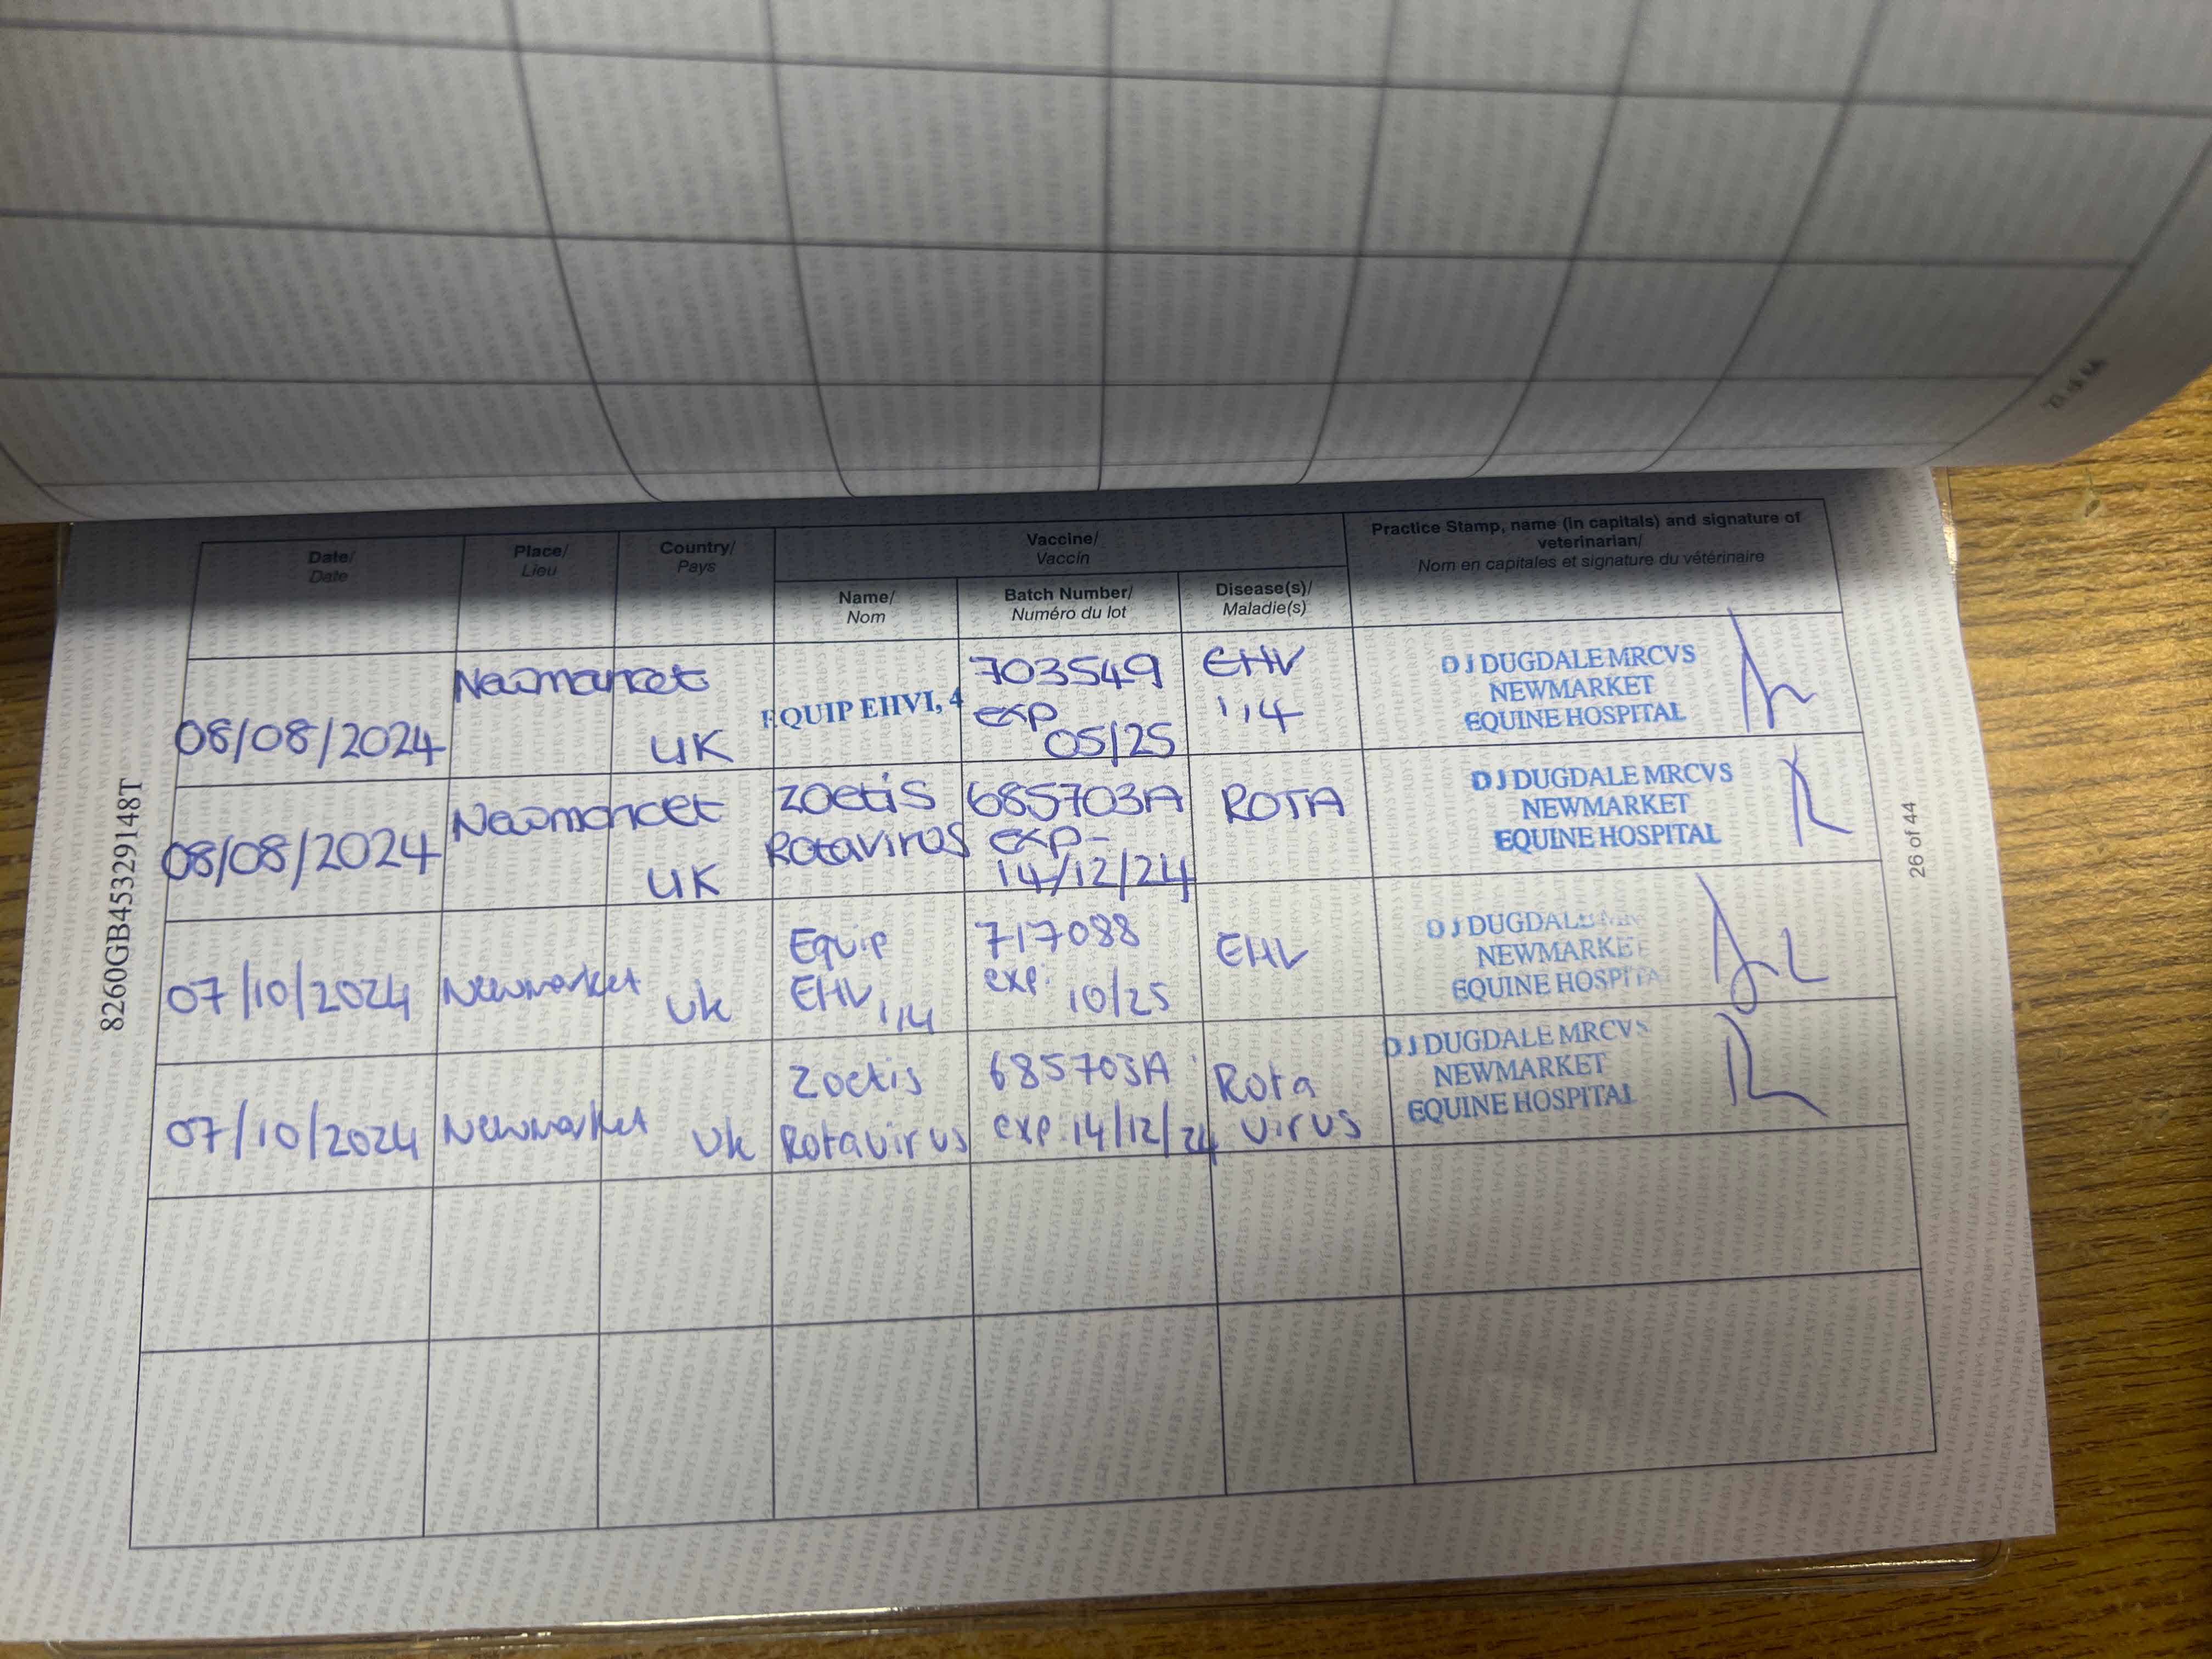 Date/
Date
Place/
Lieu
Country/
Pays
Vaccine/
Vaccin
Practice Stamp, name (in capitals) and signature of
veterinarian/
Nom en capitales et signature du vétérinaire
Name/
Nom
Batch Number/
Numéro du lot
Disease(s)/
Maladie(s)
08/08/2024
Newmarket
UK
EQUIP EHV1, 4
703549
exp
05/25
EHV
1,4
D J DUGDALE MRCVS
NEWMARKET
EQUINE HOSPITAL
08/08/2024
Newmarket
UK
Zoetis
Rotavirus
685703A
exp-
14/12/24
ROTA
D J DUGDALE MRCVS
NEWMARKET
EQUINE HOSPITAL
07/10/2024
Newmarket
Uk
Equip
EHV 1,4
717088
exp:
10/25
EHV
D J DUGDALE
NEWMARKET
EQUINE HOSPITAL
07/10/2024
Newmarket
Uk
Zoetis
Rotavirus
685703A
exp.14/12/24
Rota
virus
D J DUGDALE MRCVS
NEWMARKET
EQUINE HOSPITAL
8260GB45329148T
26 of 44